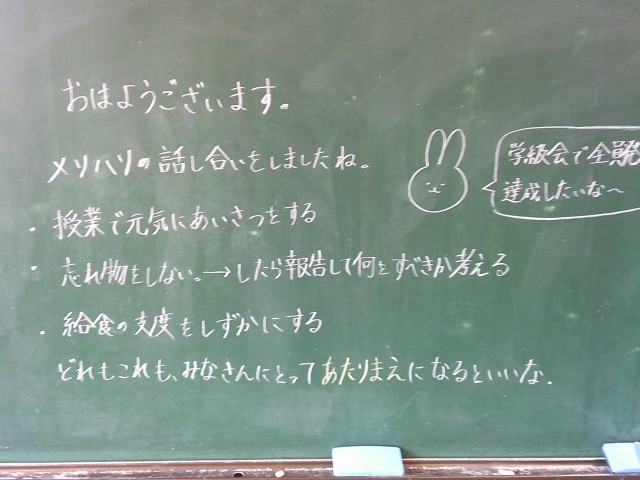 おはようございます。
メリハリの話し合いをしましたね。
・授業で元気にあいさつをする
・忘れ物をしない。→したら報告して何をすべきか考える
・給食の支度をしずかにする
どれもこれも、みなさんにとってあたりまえになるといいな.
学級会で全
達成したいな～